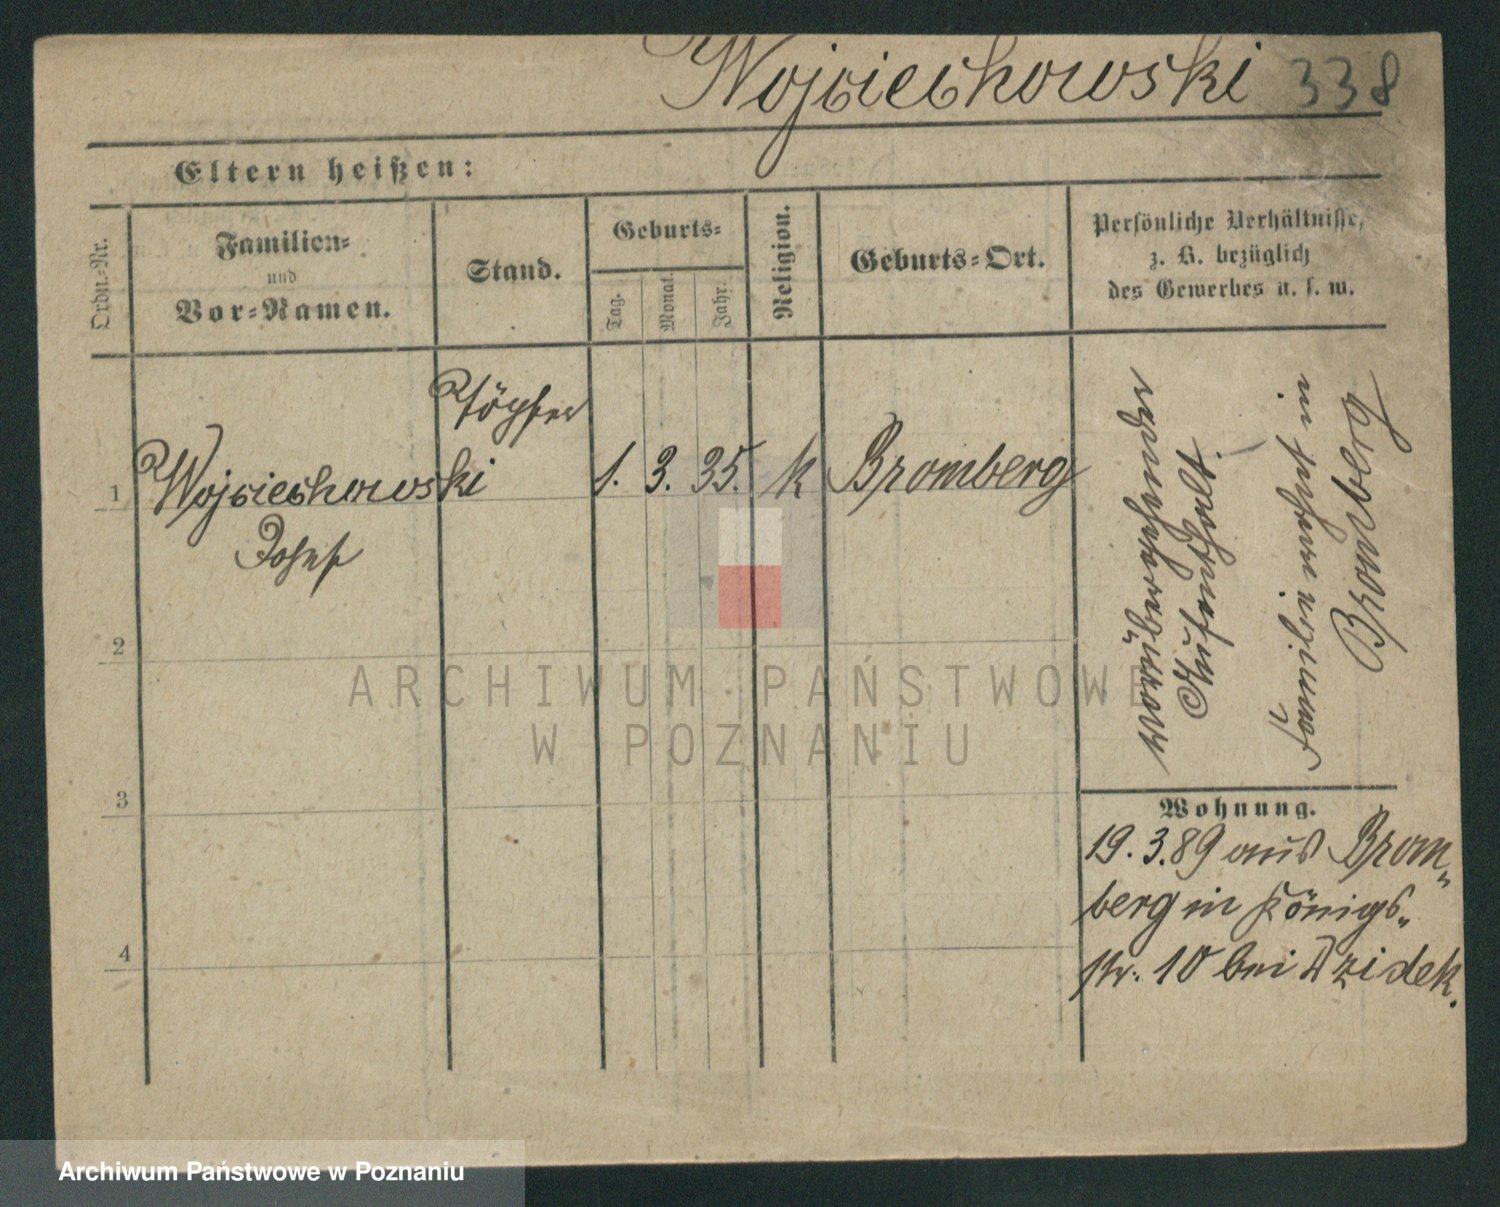 Wojciechowski 338
Eltern heißen:
Ordn.-Nr.
Familien-
und
Vor-Namen.
Stand.
Geburts-
Tag.
Monat.
Jahr.
Religion.
Geburts-Ort.
Persönliche Verhältnisse,
z. B. bezüglich
des Gewerbes u. s. w.
Töpfer
1 Wojciechowski 1. 3. 35. k Bromberg
Josef
2
3
4
in
Bromberg
Wohnung.
19. 3. 89 aus Brom-
berg in Königs-
str. 10 bei Dzidek.
ARCHIWUM PAŃSTWOWE
W POZNANIU
Archiwum Państwowe w Poznaniu